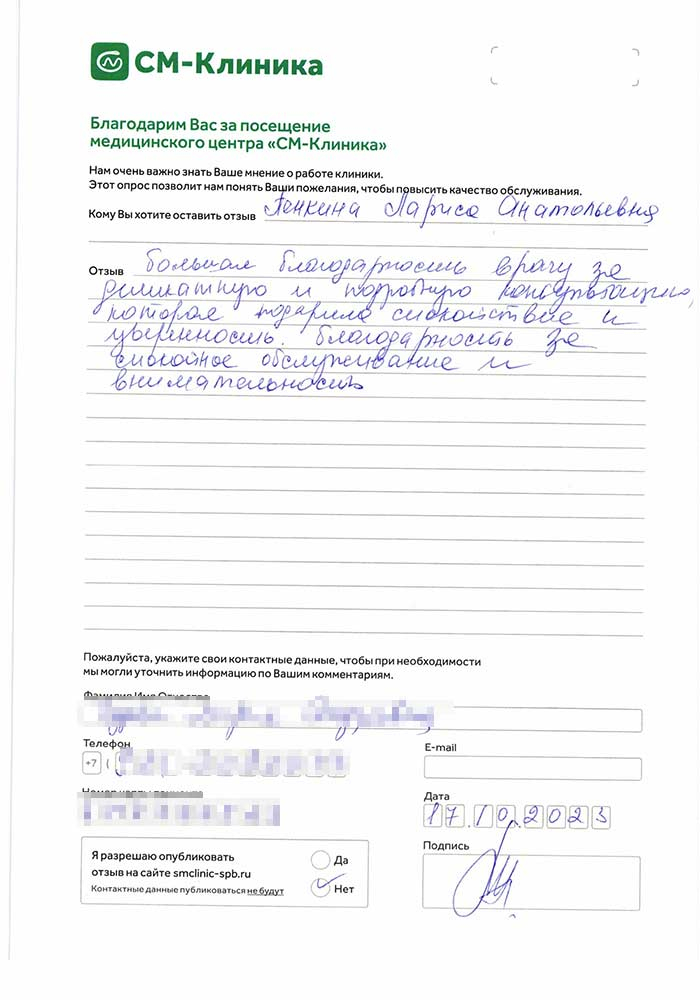 СМ-Клиника
Благодарим Вас за посещение
медицинского центра «СМ-Клиника»
Нам очень важно знать Ваше мнение о работе клиники.
Этот опрос позволит нам понять Ваши пожелания, чтобы повысить качество обслуживания.
Кому Вы хотите оставить отзыв Пенкина Лариса Анатольевна
Отзыв большая благодарность врачу за
деликатную и подробную консультацию,
которая подарила спокойствие и
уверенность. благодарность за
спокойное обслуживание и
внимательность
Пожалуйста, укажите свои контактные данные, чтобы при необходимости
мы могли уточнить информацию по Вашим комментариям.
Фамилия Имя Отчество
Телефон
+7 (
E-mail
Дата
17.10.2023
Подпись
Я разрешаю опубликовать
отзыв на сайте smclinic-spb.ru
Контактные данные публиковаться не будут
Да
Нет